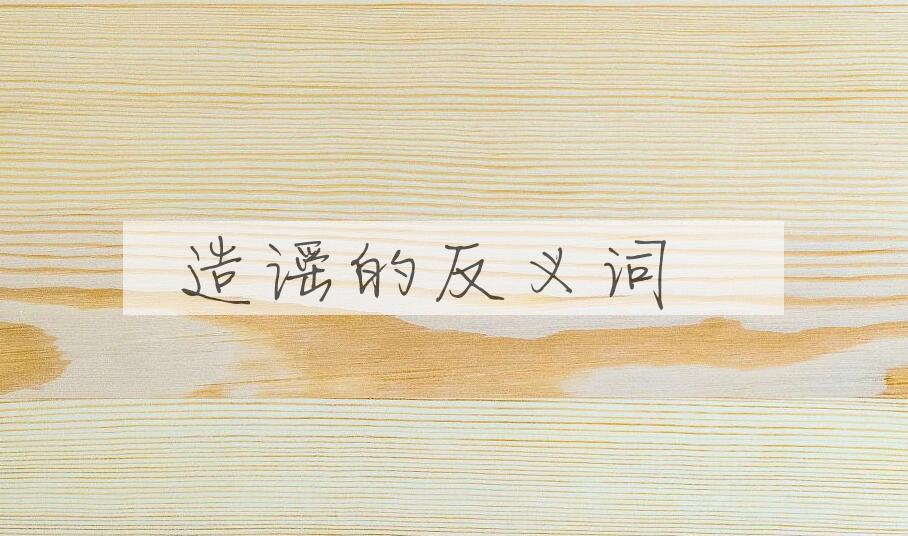 造谣的反义词